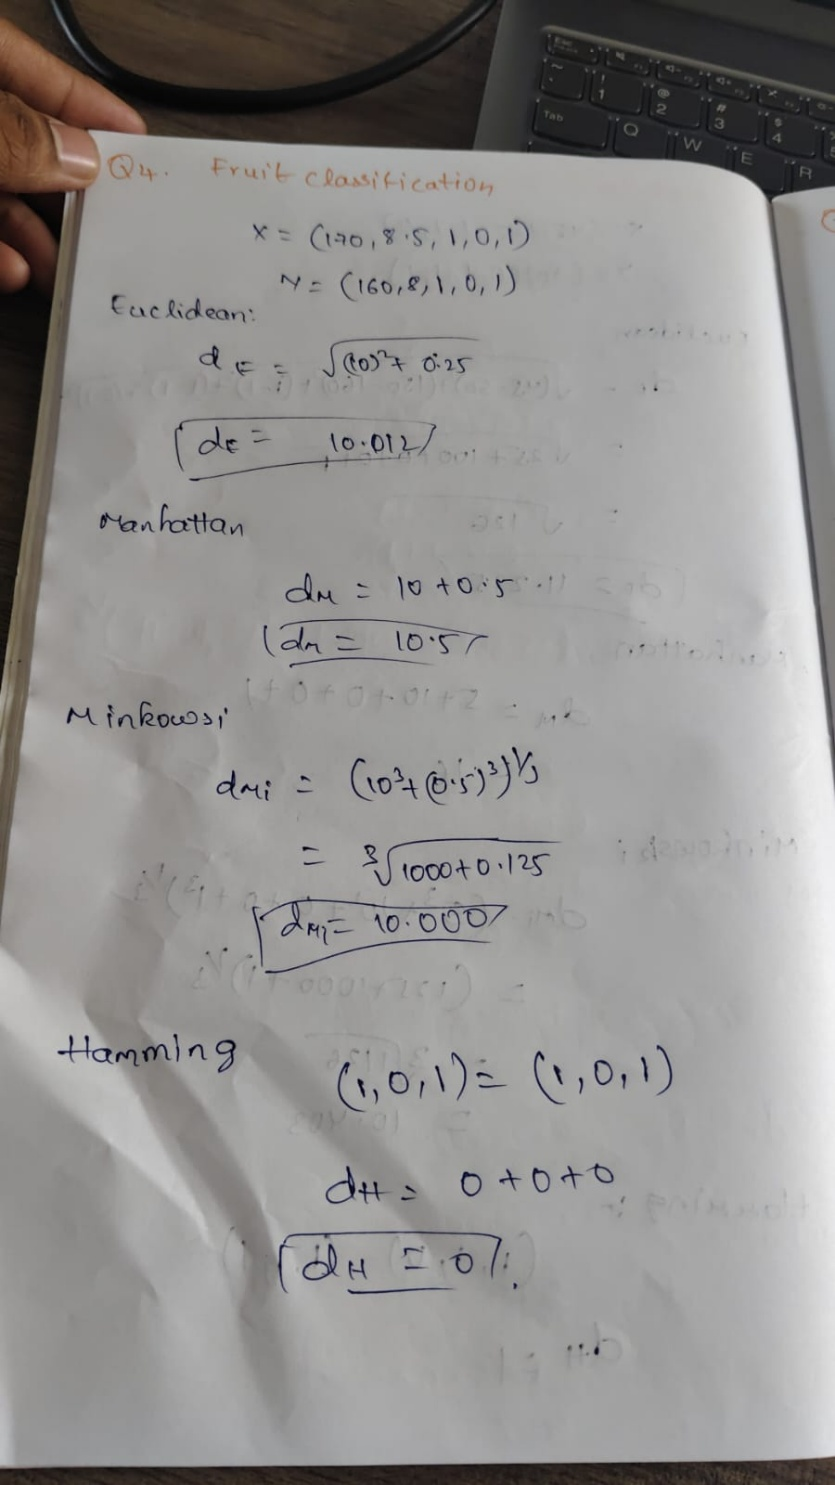 Q4. Fruit classification
X = (170, 8.5, 1, 0, 1)
Y = (160, 8, 1, 0, 1)
Euclidean:
dE = √(10)² + 0.25
dE = 10.012
Manhattan
dM = 10 + 0.5
dM = 10.5
Minkowsi
dMi = (10³ + (0.5)³)^1/3
= ∛1000 + 0.125
dMi = 10.000
Hamming
(1, 0, 1) = (1, 0, 1)
dH = 0 + 0 + 0
dH = 0
Esc
Tab
! 1
@ 2
# 3
$ 4
Q W E R